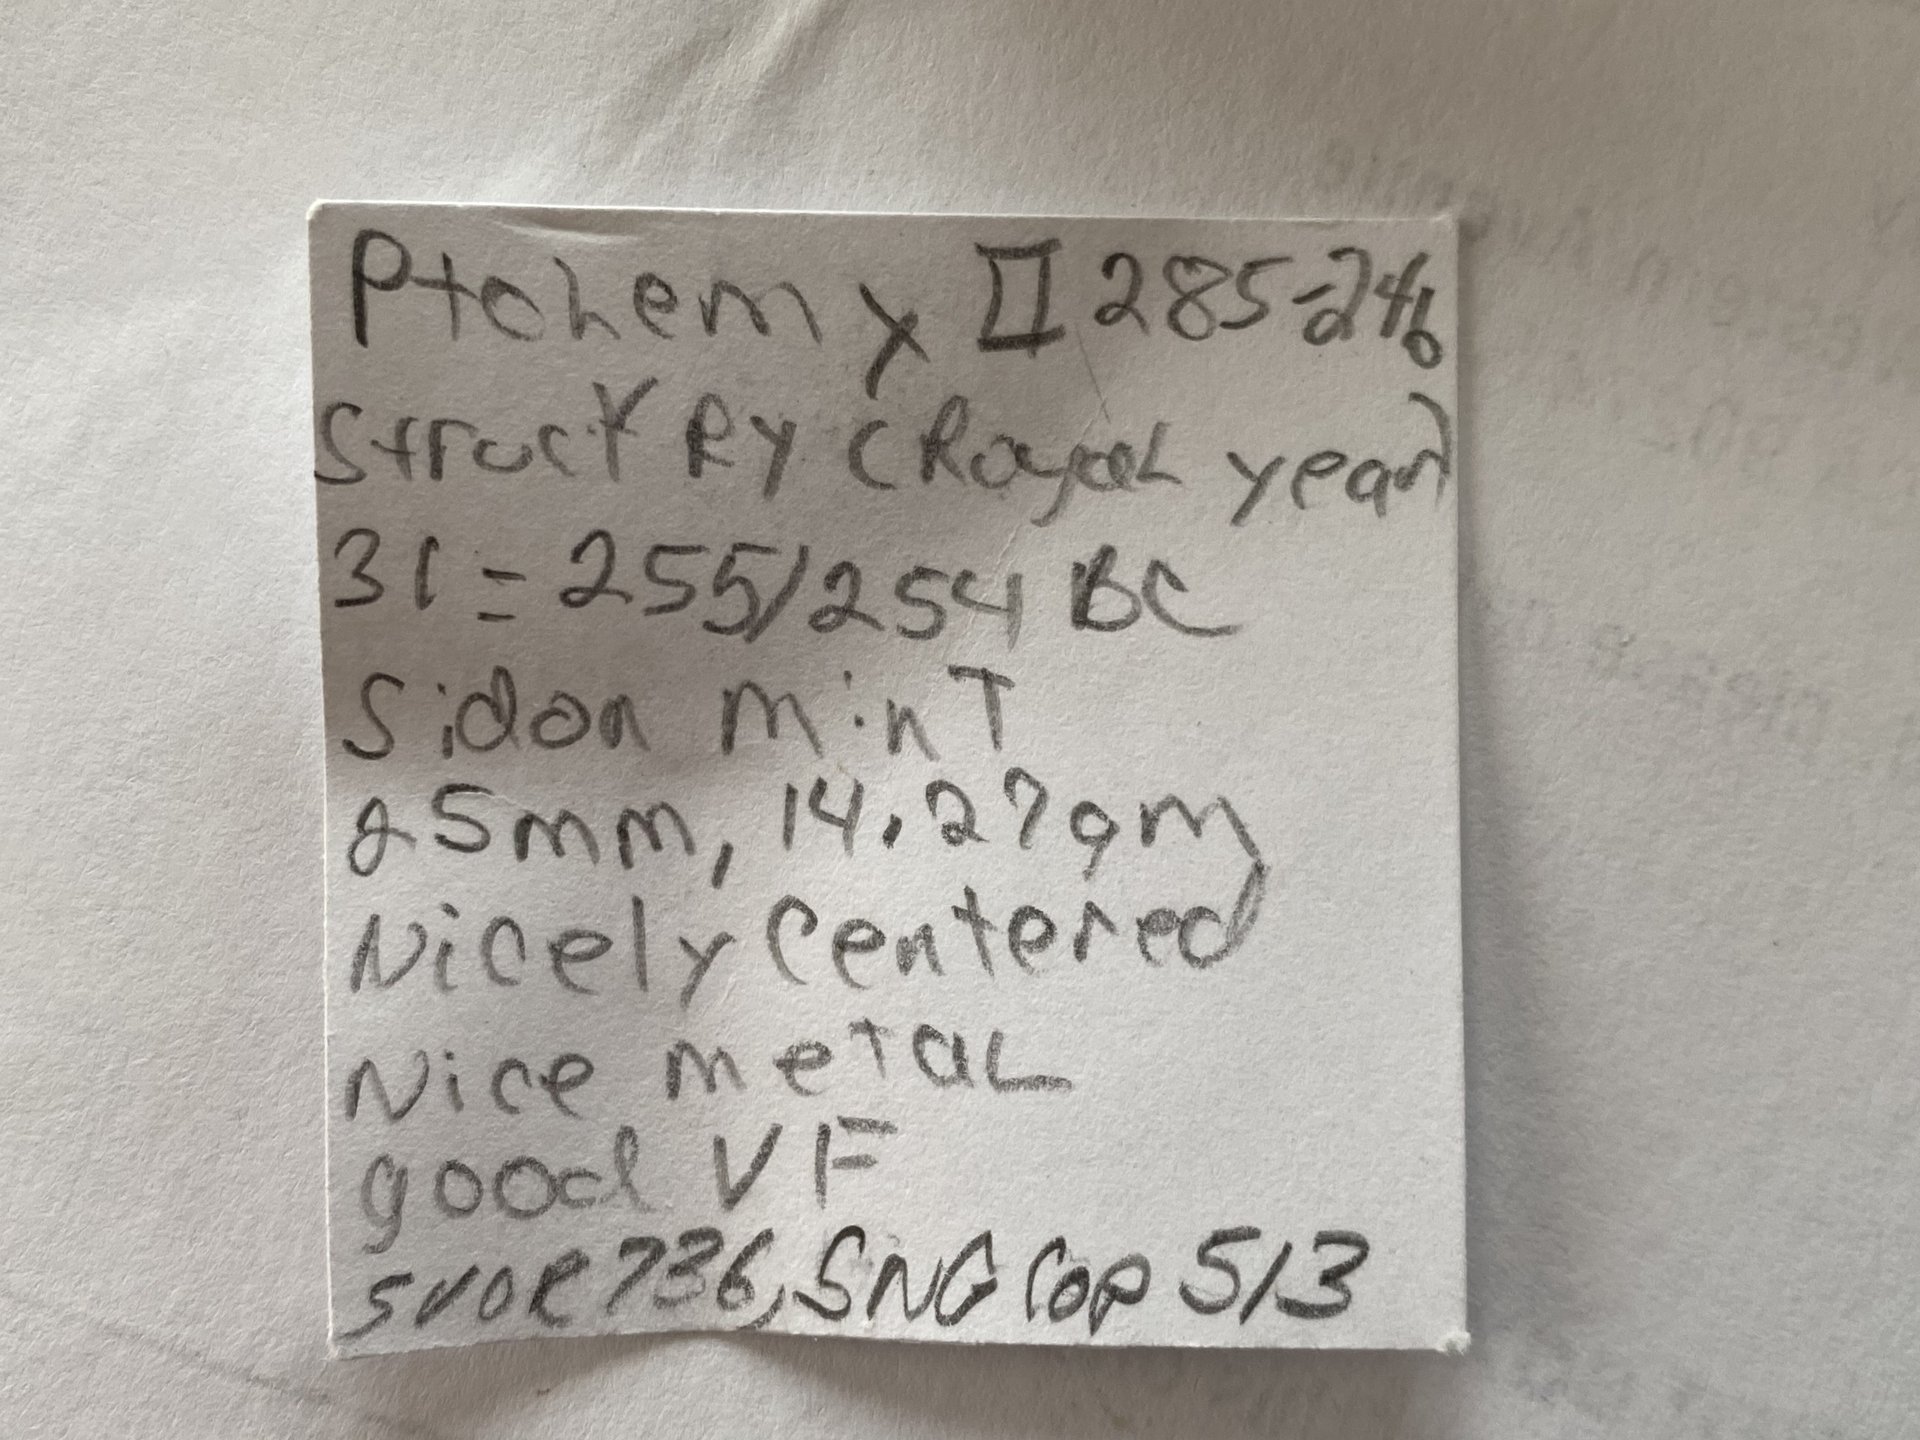 Ptolemy II 285-246
Struck RY (Royal year)
31 = 255/254 BC
Sidon minT
25mm, 14.27gm
Nicely Centered
Nice metaL
good VF
SVOR 736, SNG Cop 513